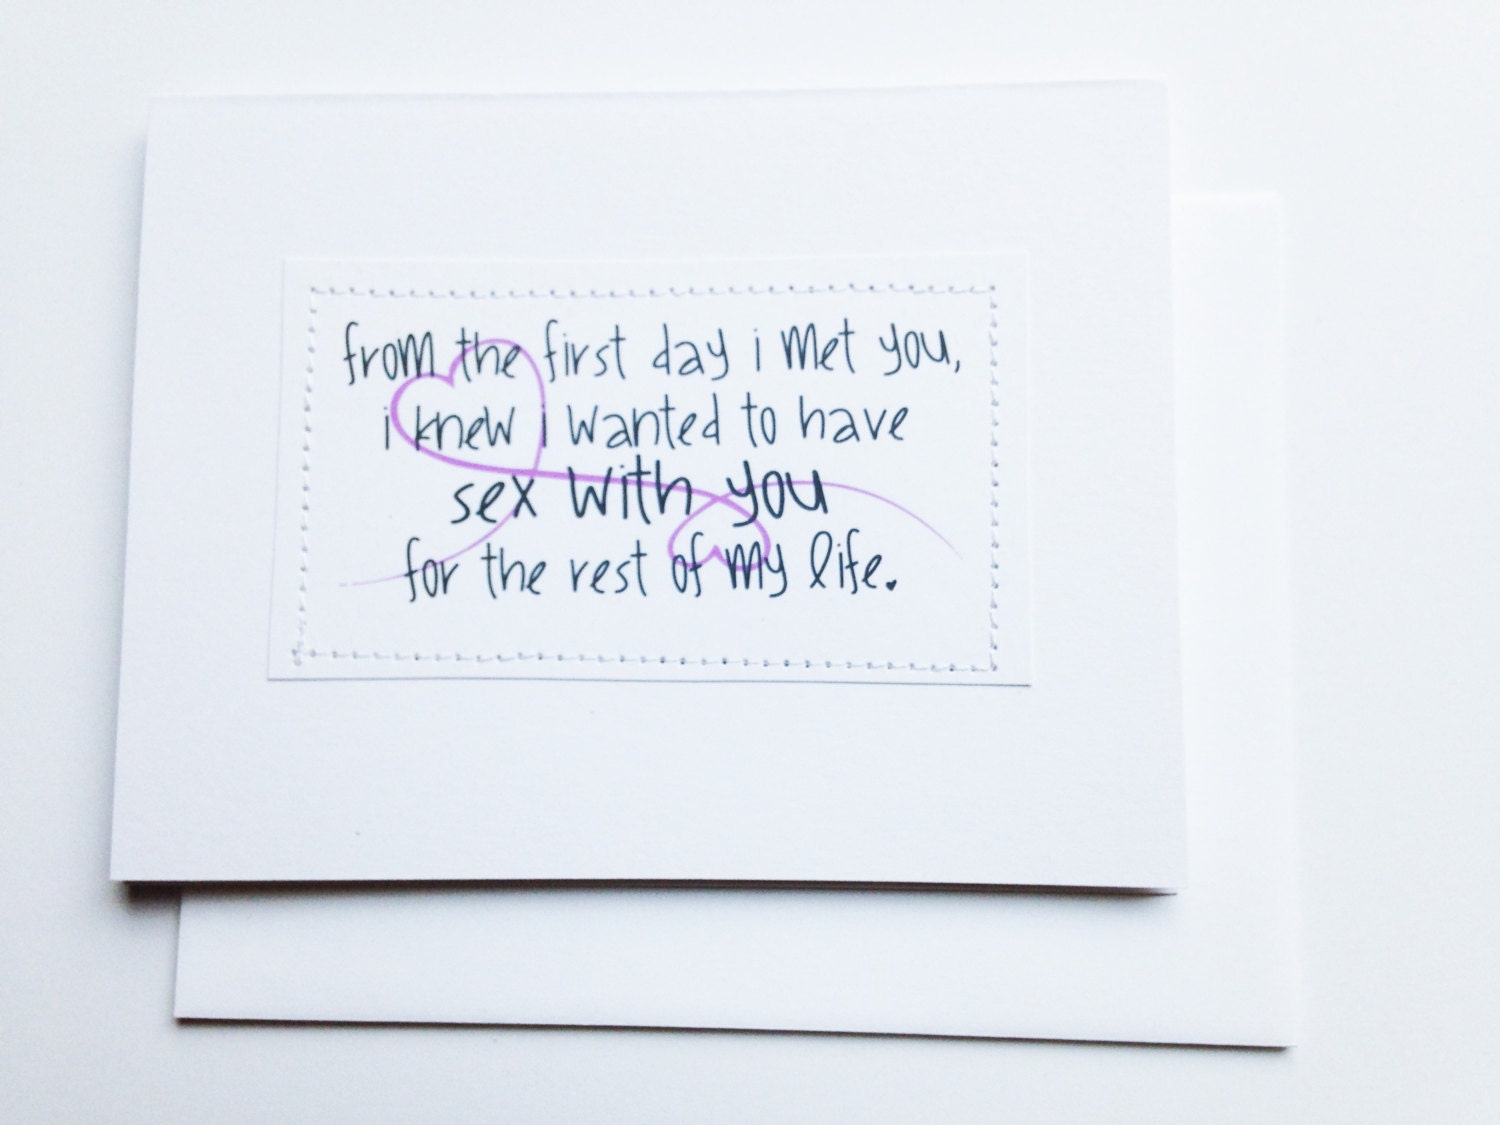 from the first day i met you,
i knew i wanted to have
sex with you
for the rest of my life.